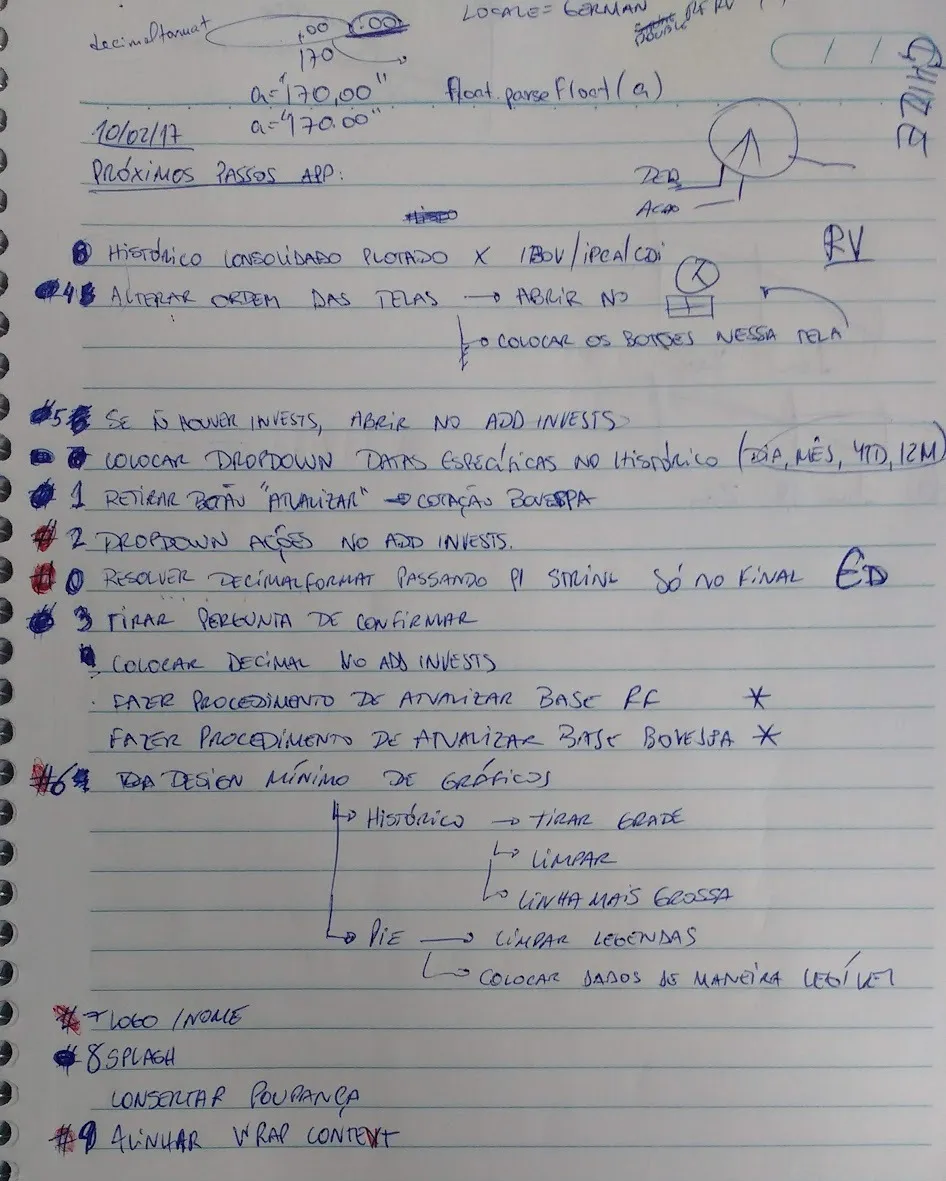 LOCALE = GERMAN
decimalformat ,00 .00
DOUBLE
170
a="170,00" float.parseFloat(a)
a="170.00"
10/02/17
PRÓXIMOS PASSOS APP:
AÇÃO
HISTÓRICO CONSOLIDADO PLOTADO X IBOV/IPCA/CDI RV
#4 ALTERAR ORDEM DAS TELAS → ABRIR NO
→ COLOCAR OS BOTÕES NESSA TELA
#5 SE Ñ HOUVER INVESTS, ABRIR NO ADD INVESTS
COLOCAR DROPDOWN DATAS ESPECÍFICAS NO HISTÓRICO (DIA, MÊS, YTD, 12M)
# 1 RETIRAR BOTÃO "ATUALIZAR" → COTAÇÃO BOVESPA
# 2 DROPDOWN AÇÕES NO ADD INVESTS.
# 0 RESOLVER DECIMALFORMAT PASSANDO P/ STRING SÓ NO FINAL ED
# 3 TIRAR PERGUNTA DE CONFIRMAR
COLOCAR DECIMAL NO ADD INVESTS
. FAZER PROCEDIMENTO DE ATUALIZAR BASE RF *
FAZER PROCEDIMENTO DE ATUALIZAR BASE BOVESPA *
#6 DESIGN MÍNIMO DE GRÁFICOS
→ HISTÓRICO → TIRAR GRADE
→ LIMPAR
→ LINHA MAIS GROSSA
→ PIE → LIMPAR LEGENDAS
→ COLOCAR DADOS DE MANEIRA LEGÍVEL
# 7 LOGO / NOME
# 8 SPLASH
CONSERTAR POUPANÇA
#9 ALINHAR WRAP CONTENT